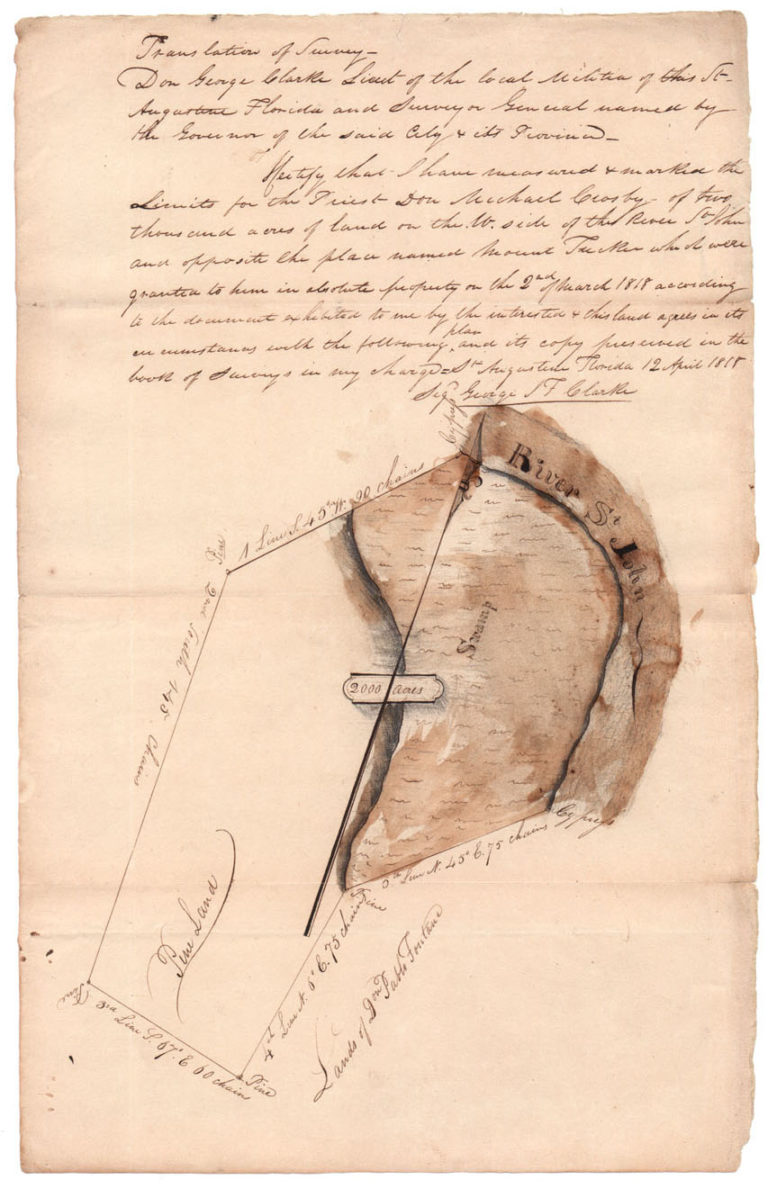 Translation of Survey –
Don George Clarke Lieut of the local Militia of this St.
Augustine Florida and Surveyor General named by
the Governor of the said City & its Province –
Certify that I have measured & marked the
Limits for the Priest Don Michael Crosby – of two
thousand acres of land on the W. side of the River St. John
and opposite the place named Mount Tucker which were
granted to him in absolute property on the 2nd of March 1818 according
to the document exhibited to me by the interested & this land agrees in its
plan
circumstances with the following and its copy preserved in the
book of Surveys in my charge = St. Augustine Florida 12 April 1818
Sig. George J F Clarke
Cypress
River St. John
1 Line S. 45° W. 90 chains
Pine
2nd South 145 Chains
Swamp
2000 acres
Cypress
5th Line N. 45° E. 75 chains
Pine
Pine Land
4th Line N. 6° E. 75 chains
Lands of Don Pablo Fontane
Pine
3rd Line S. 67° E 60 chains
Pine